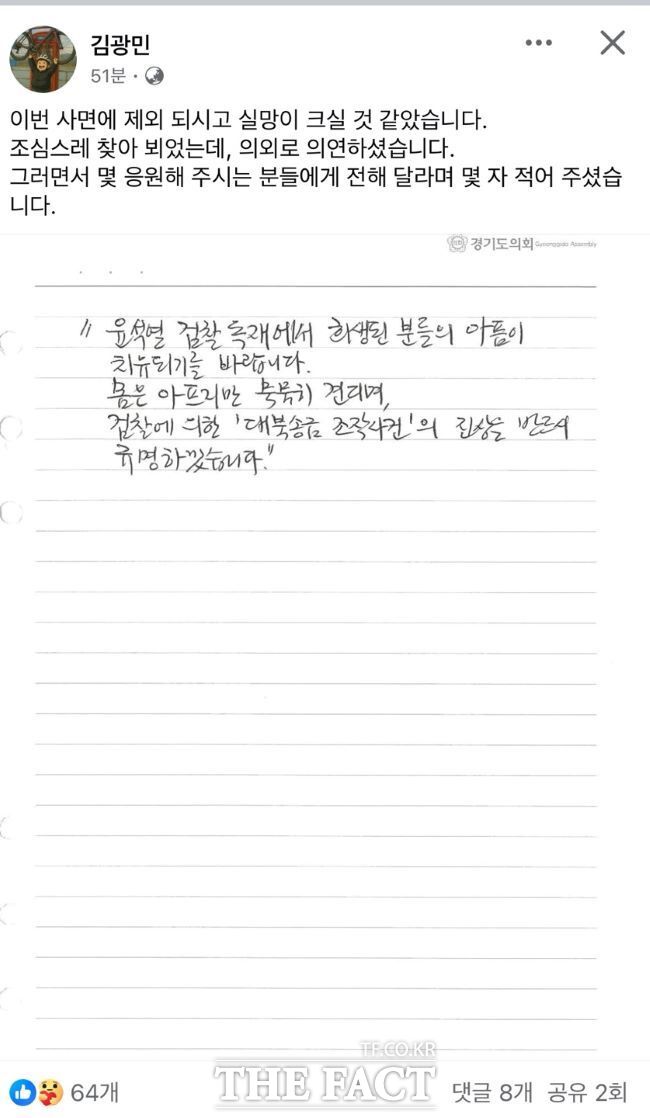 김광민
51분 ·
이번 사면에 제외 되시고 실망이 크실 것 같았습니다.
조심스레 찾아 뵈었는데, 의외로 의연하셨습니다.
그러면서 몇 응원해 주시는 분들에게 전해 달라며 몇 자 적어 주셨습
니다.
경기도의회 Gyeonggido Assembly
" 윤석열 검찰독재에서 희생된 분들의 아픔이
치유되기를 바랍니다.
몸은 아프지만 묵묵히 견디며,
검찰에 의한 '대북송금 조작사건'의 진상을 반드시
규명하겠습니다."
TF.CO.KR
THE FACT
64개
댓글 8개 공유 2회